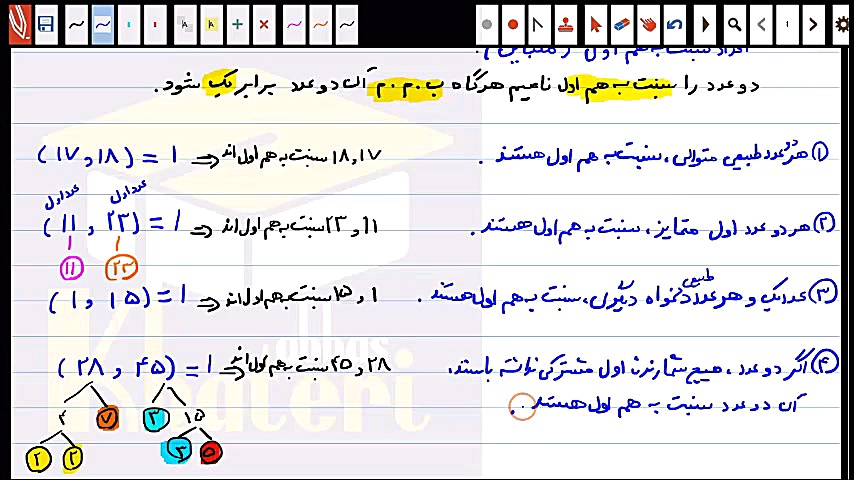 اعداد نسبت به هم اول (متباین):
دو عدد را نسبت به هم اول نامیم هرگاه ب.م.م آن دو عدد برابر یک شود.
۱) هر دو عدد طبیعی متوالی، نسبت به هم اول هستند.
(۱۷,۱۸) = ۱ ⇒ ۱۷, ۱۸ نسبت به هم اول اند
۲) هر دو عدد اول متمایز، نسبت به هم اول هستند.
عدد اول عدد اول
(۱۱, ۲۳) = ۱ ⇒ ۱۱ و ۲۳ نسبت به هم اول اند
۱۱ ۲۳
۳) عدد یک و هر عدد طبیعی دلخواه دیگری، نسبت به هم اول هستند.
(۱, ۱۵) = ۱ ⇒ ۱ و ۱۵ نسبت به هم اول اند
۴) اگر دو عدد، هیچ شمارنده اول مشترکی نداشته باشند،
آن دو عدد نسبت به هم اول هستند.
(۲۸, ۴۵) = ۱ ⇒ ۲۸ و ۴۵ نسبت به هم اول اند
۴ ۷ ۳ ۱۵
۲ ۲ ۳ ۵
Khateri